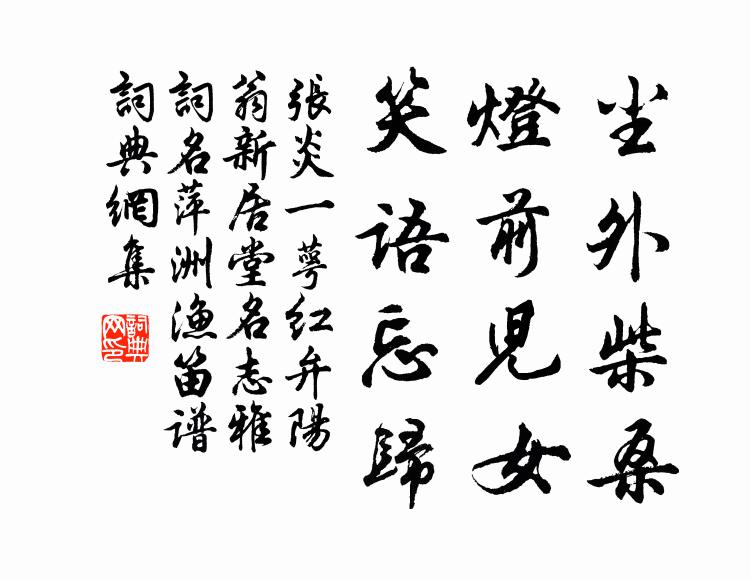 尘外柴桑
燈前兒女
笑語忘歸
張炎一萼紅弁陽
翁新居堂名志雅
詞名萍洲漁笛谱
詞典網集
詞典网印